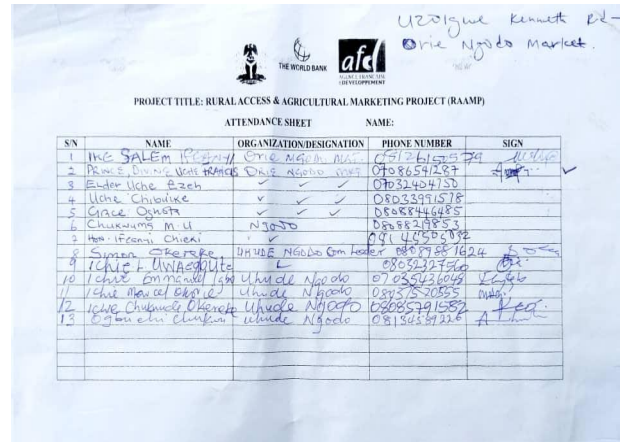 Uzoigwe Kenneth Rd-
Orie Ngodo Market.
THE WORLD BANK
afd
AGENCE FRANÇAISE
DE DÉVELOPPEMENT
PROJECT TITLE: RURAL ACCESS & AGRICULTURAL MARKETING PROJECT (RAAMP)
ATTENDANCE SHEET NAME:
S/N NAME ORGANIZATION/DESIGNATION PHONE NUMBER SIGN
1 IKE SALEM Orie Ngodo
2 PRINCE, DIVINE UCHE FRANCIS ORIE NGODO 07086541287 ✓
3 Elder Uche Ezeh ✓ ✓ ✓ 07032404750
4 Uche Chibuike ✓ ✓ ✓ 08033991578
5 Grace Ogbota ✓ ✓ ✓ 08088446485
6 Chukwuma M.U Ngodo 08088219853
7 Hon. Ifeanyi ✓
8 Simon Okereke UHUDE NGODO Com Leader
9 Ichie 08032327560
10 Ichie Emmanuel Uhude Ngodo 07035436048
11 Ichie Marcel Uhude Ngodo 08037520555
12 Uhude Ngodo 08085791582
13 Uhude Ngodo 08134539226